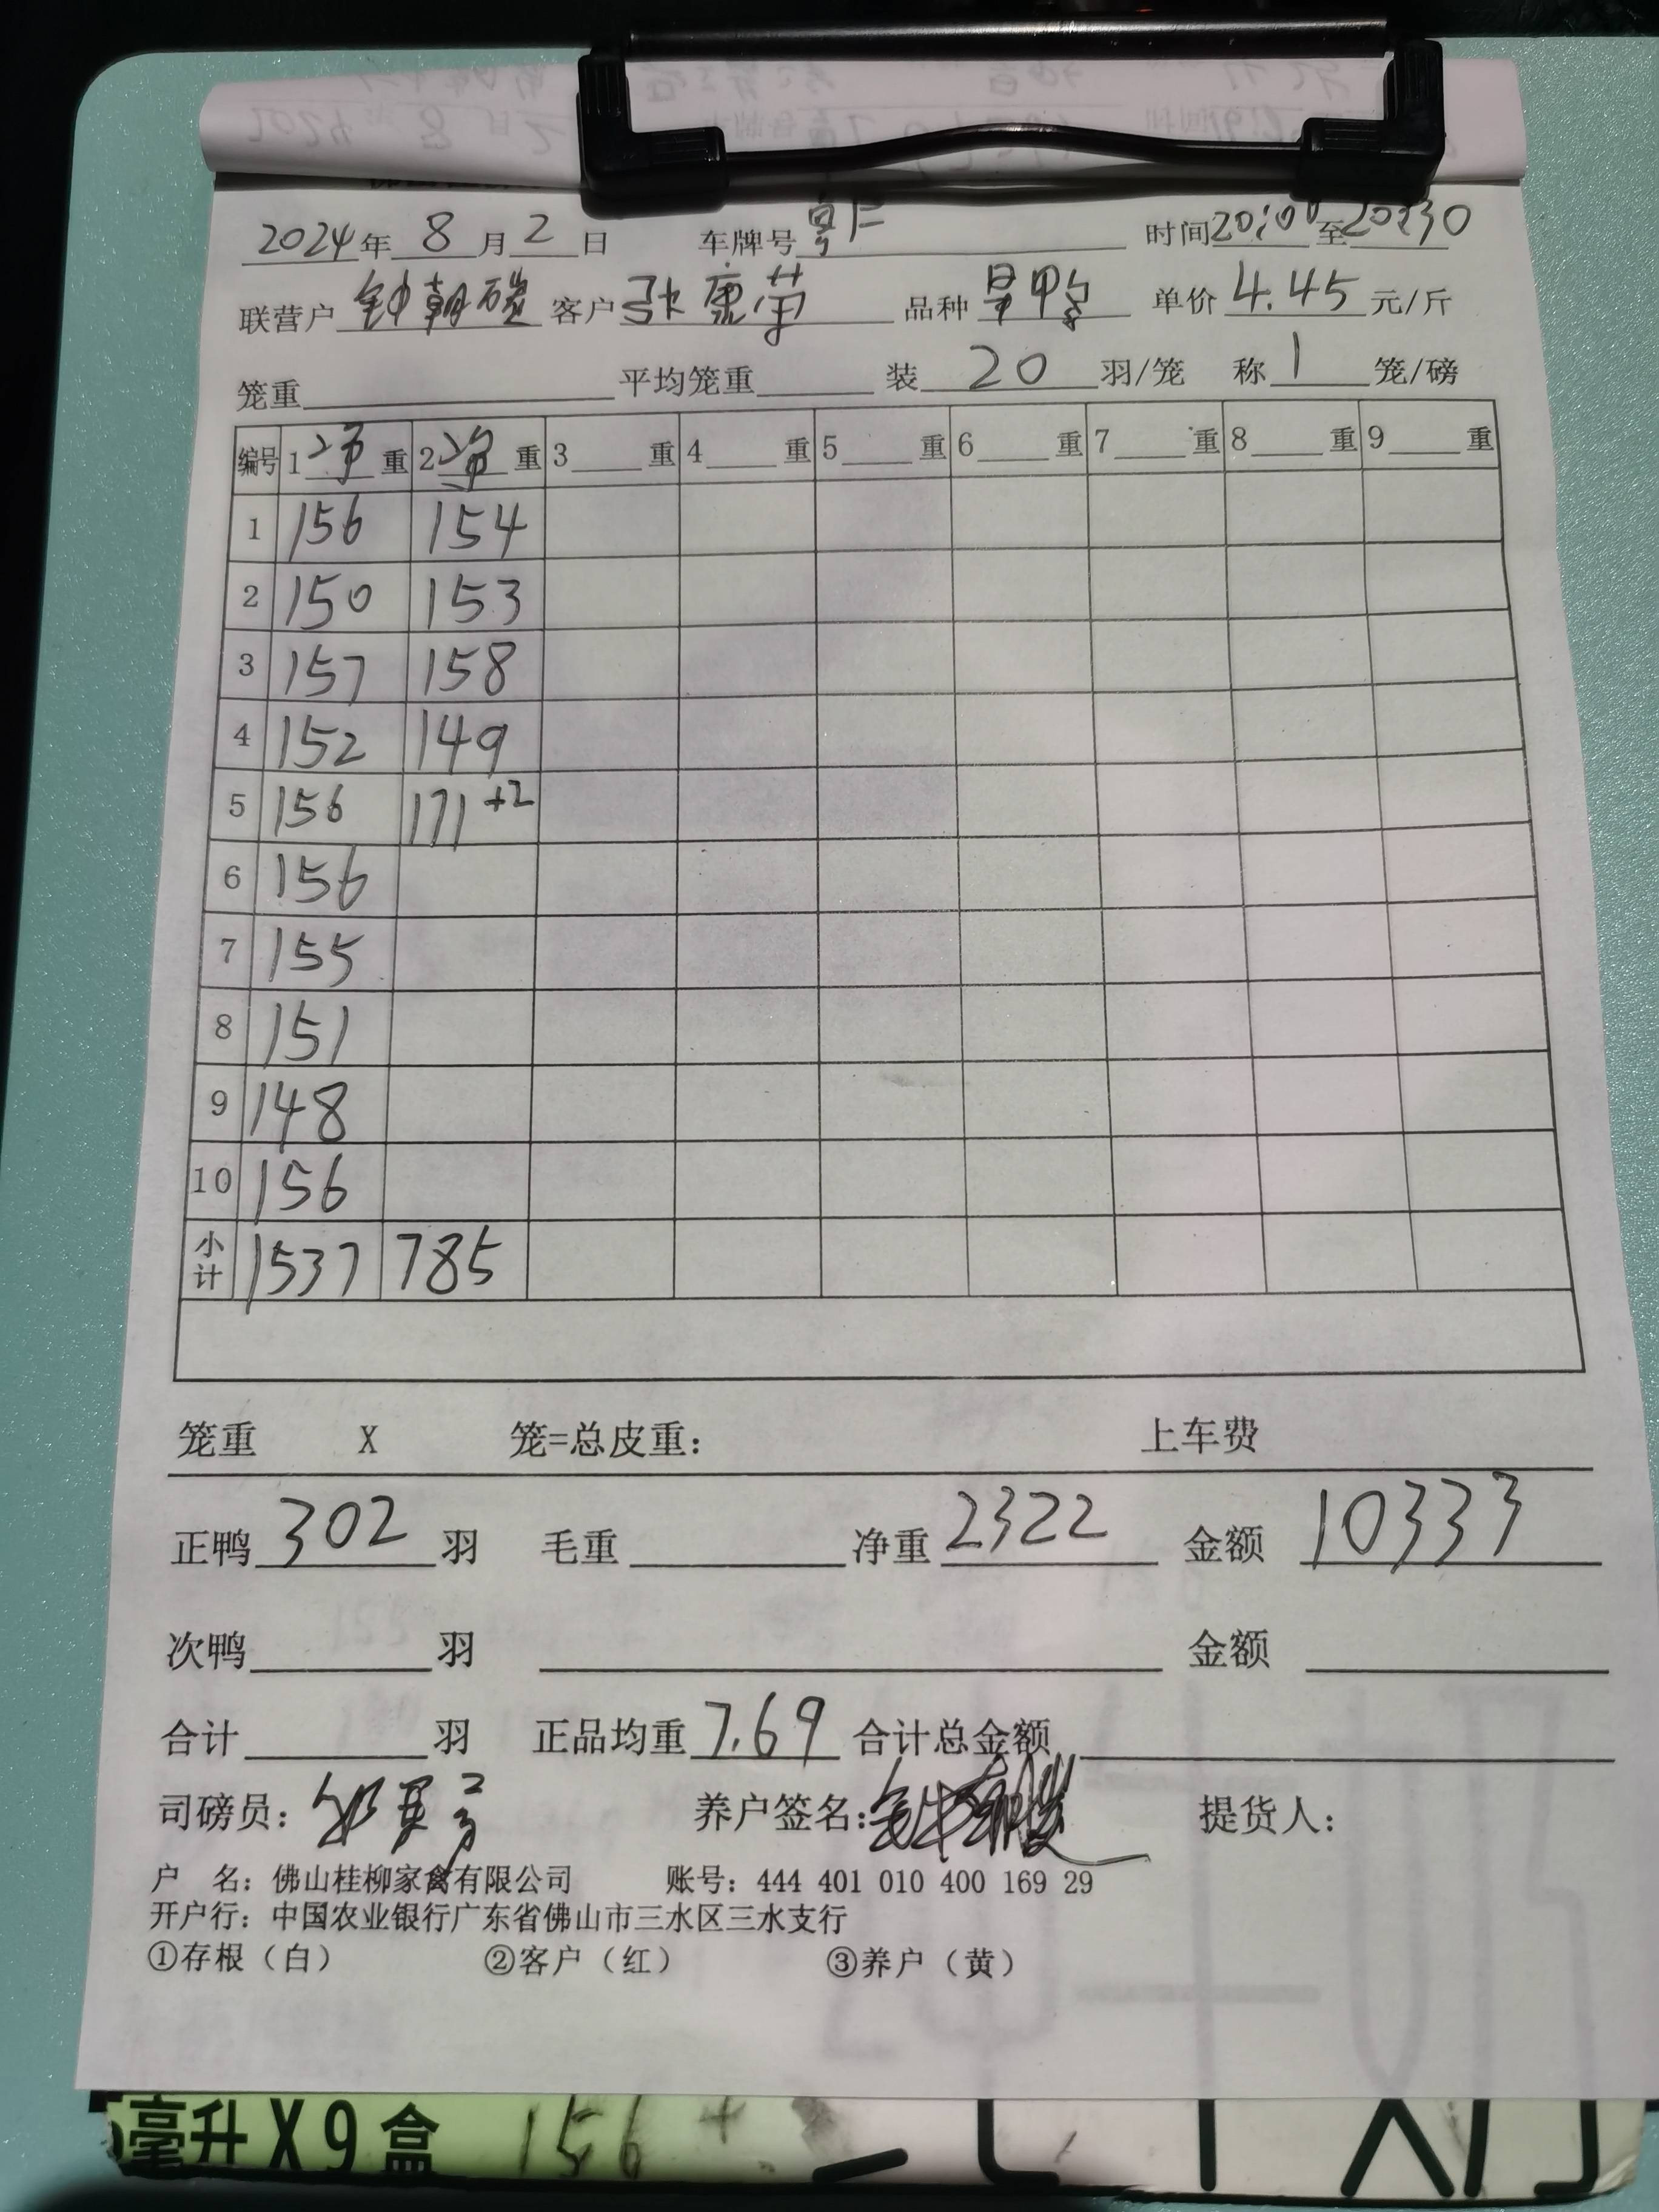 2024年 8 月 2 日 车牌号 时间20:00至20:30
联营户 钟朝 客户 张康 品种 单价 4.45 元/斤
笼重 平均笼重 装 20 羽/笼 称 1 笼/磅
编号 1 净 重 2 净 重 3 重 4 重 5 重 6 重 7 重 8 重 9 重
1 156 154
2 150 153
3 157 158
4 152 149
5 156 171+2
6 156
7 155
8 151
9 148
10 156
小计 1537 785
笼重 X 笼=总皮重： 上车费
正鸭 302 羽 毛重 净重 2322 金额 10333
次鸭 羽 金额
合计 羽 正品均重 7.69 合计总金额
司磅员： 养户签名： 提货人：
户 名：佛山桂柳家禽有限公司 账号：444 401 010 400 169 29
开户行：中国农业银行广东省佛山市三水区三水支行
①存根（白） ②客户（红） ③养户（黄）
毫升X9盒 156+